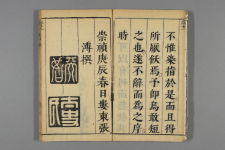 不惟染指於是而且得
所厭飫焉予卽烏敢短
之也遂不辭而爲之序
時
崇禎庚辰春日婁東張
溥撰